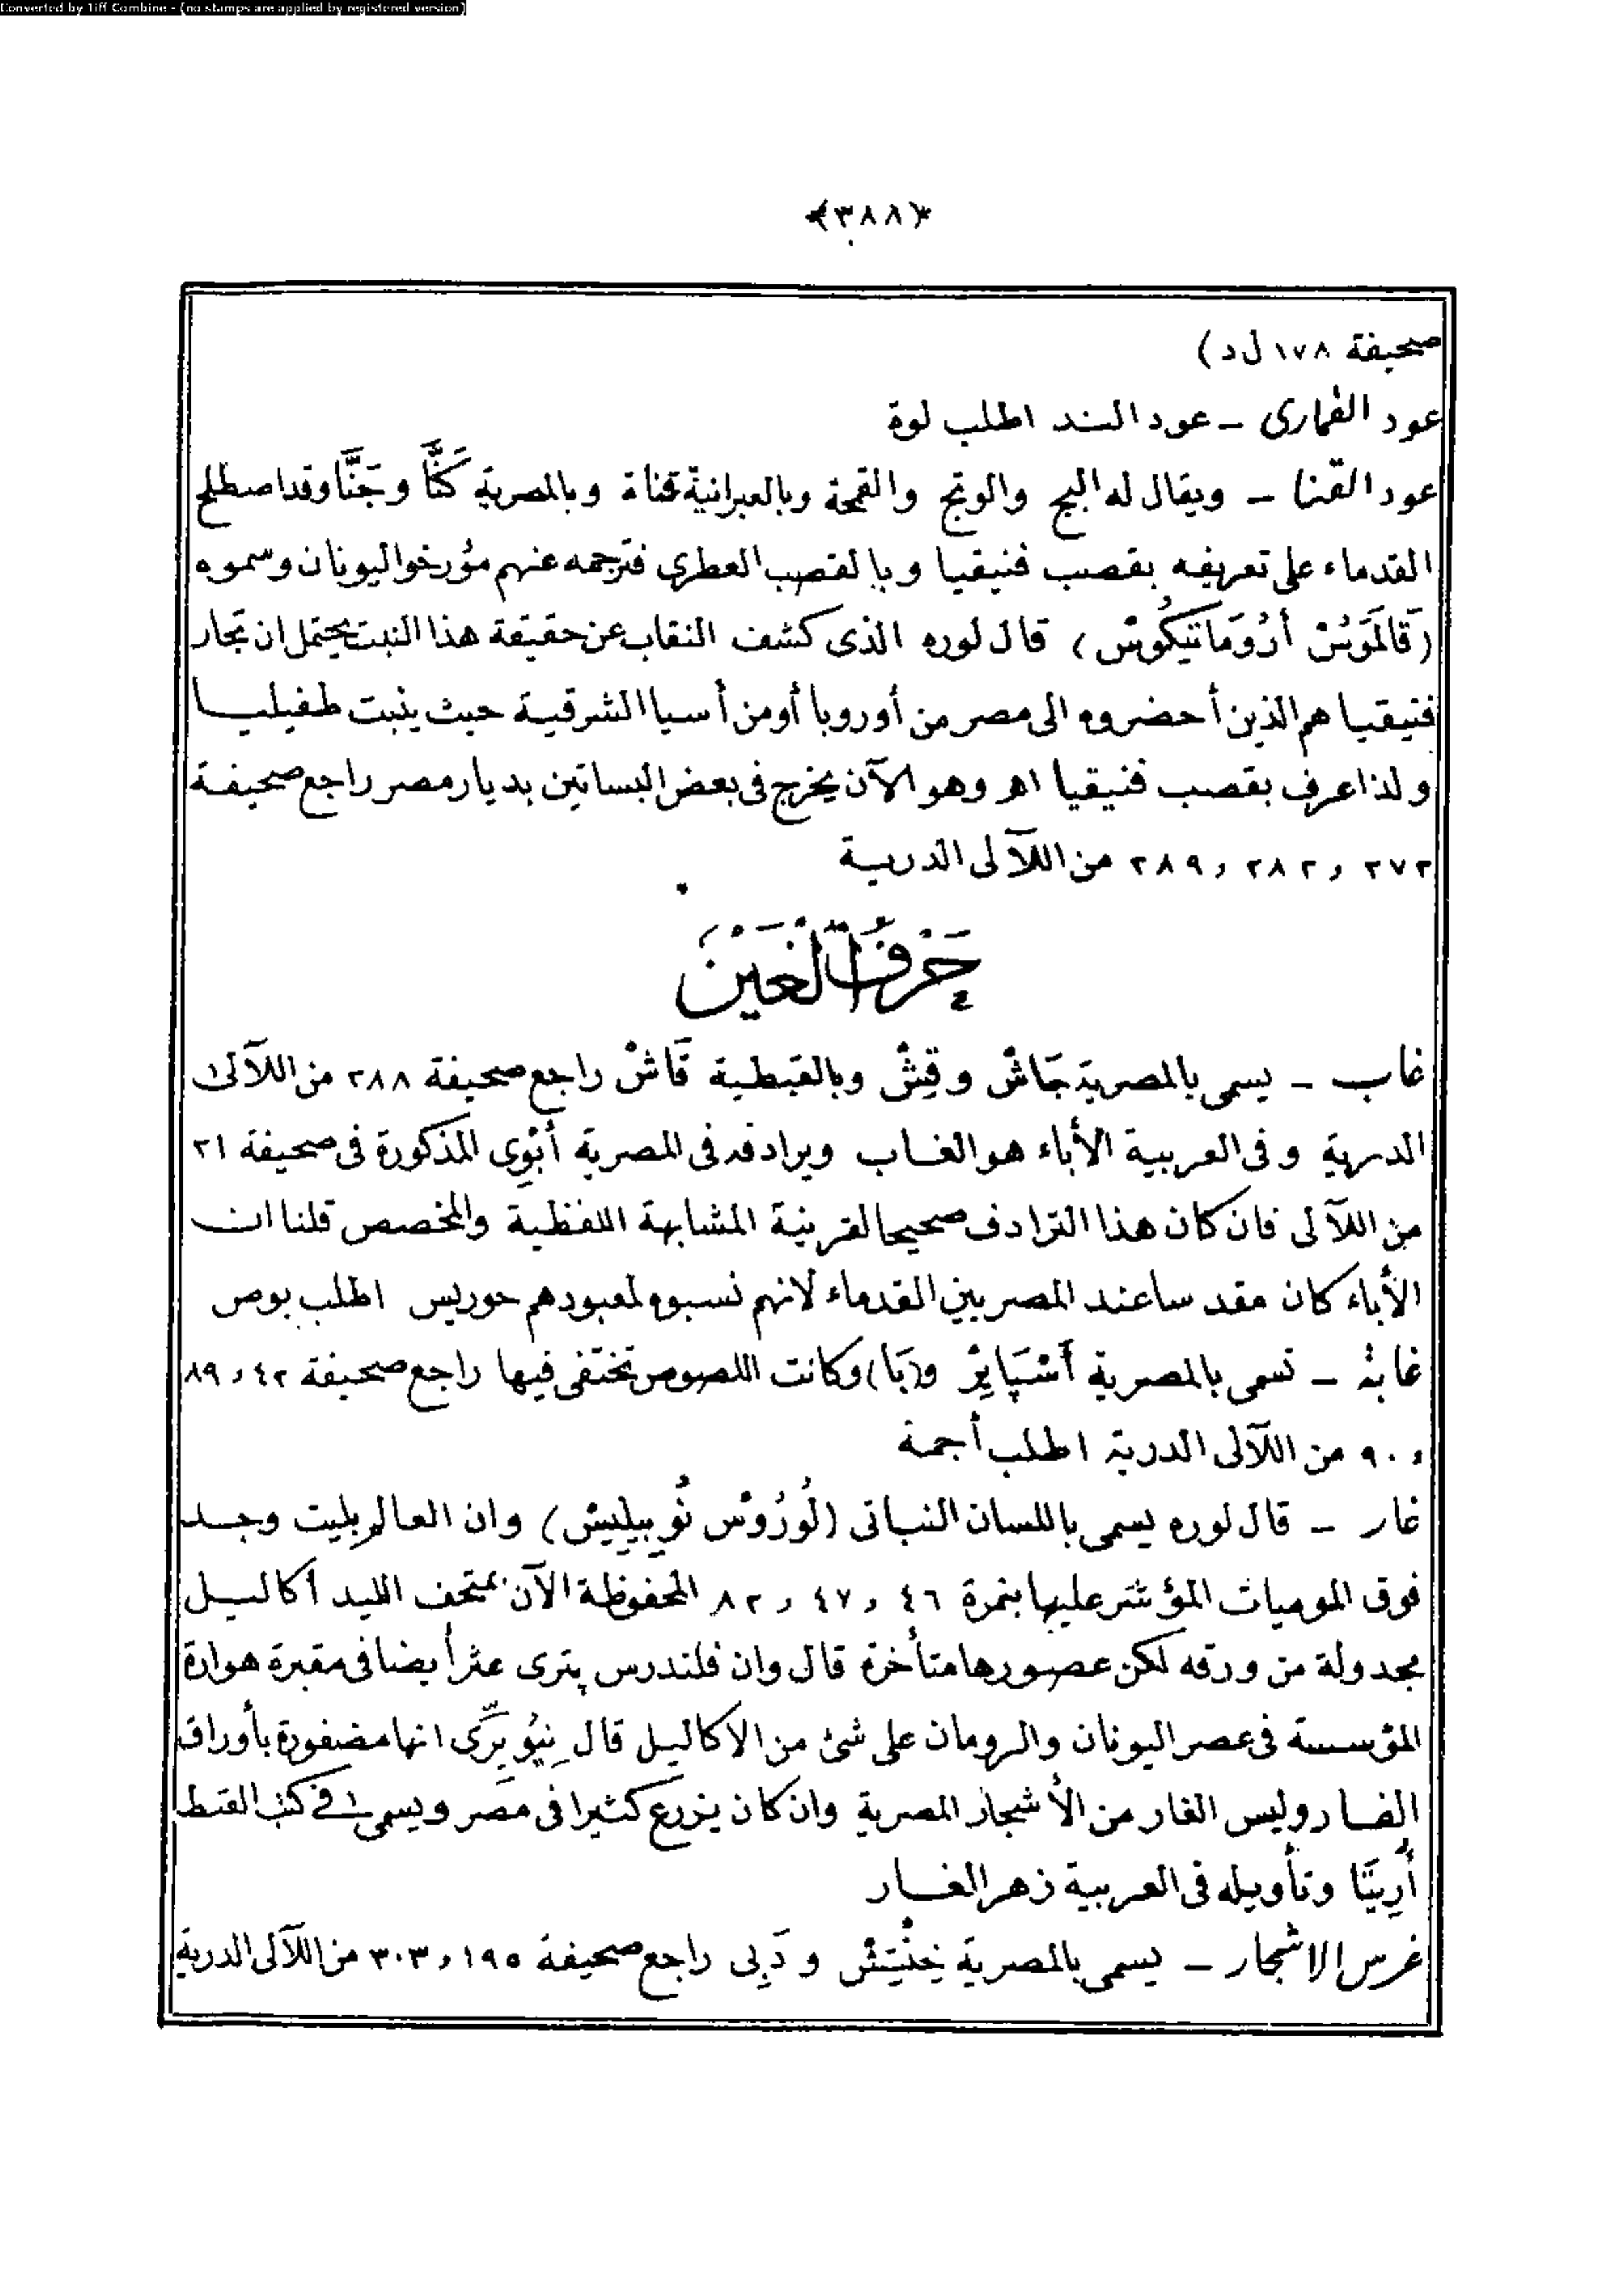 Converted by Tiff Combine - (no stamps are applied by registered version)
﴿٣٨٨﴾
صحيفة ١٧٨ ل د)
عود القمارى - عود الند اطلب لوة
عود القنا - ويقال له البج والوتج والقمحة وبالعبرانية قناة وبالمصرية كَنَّا وجَنَّا وقد اصطلح
القدماء على تعريفه بقصب فنيقيا وبالقصب العطرى فترجمه عنهم مؤرخو اليونان وسموه
(قَالَمَوُسْ أَرُوَمَاتِيكُوسْ) قال لوره الذى كشف النقاب عن حقيقة هذا النبت يحتمل ان تجار
فنيقيا هم الذين أحضروه الى مصر من أوروبا أو من أسيا الشرقية حيث ينبت طفيليا
ولذا عرف بقصب فنيقيا اهـ وهو الآن يخرج فى بعض البساتين بديار مصر راجع صحيفة
٢٧٢ و ٢٨٢ و ٢٨٩ من اللآلى الدرية
حَرْفُ الْغَيْن
غاب - يسمى بالمصرية جَاشْ وقِشْ وبالقبطية قَاشْ راجع صحيفة ٢٨٨ من اللآلئ
الدرية وفى العربية الأباء هو الغاب ويرادفه فى المصرية أَبْوِى المذكورة فى صحيفة ٢١
من اللآلى فان كان هذا الترادف صحيحا لقرينة المشابهة اللفظية والمخصص قلنا ان
الأباء كان مقدسا عند المصريين القدماء لانهم نسبوه لمعبودهم حوريس اطلب بوص
غابة - تسمى بالمصرية أَشْپَايِرْ و(بَا) وكانت اللصوص تختفى فيها راجع صحيفة ٤٢ و ٨٩
و ٩٠ من اللآلى الدرية اطلب أجمة
غار - قال لوره يسمى باللسان النباتى (لُورُوْسْ نُوبِيلِيسْ) وان العالم پليت وجد
فوق الموميات المؤشر عليها بنمرة ٤٦ و ٤٧ و ٨٢ المحفوظة الآن بمتحف الليد أكاليل
مجدولة من ورقه لكن عصورها متأخرة قال وان فلندرس پترى عثر أيضا فى مقبرة هوارة
المؤسسة فى عصر اليونان والرومان على شئ من الاكاليل قال نِيُوبِرِّى انها مضفورة بأوراق
الغار وليس الغار من الأشجار المصرية وان كان يزرع كثيرا فى مصر ويسمى فى كتب القبط
أَرِيبَّا وتأويله فى العربية زهر الغار
غرس الاشجار - يسمى بالمصرية خِنْتِشْ و دَبِى راجع صحيفة ١٩٥ و ٣٠٣ من اللآلى الدرية